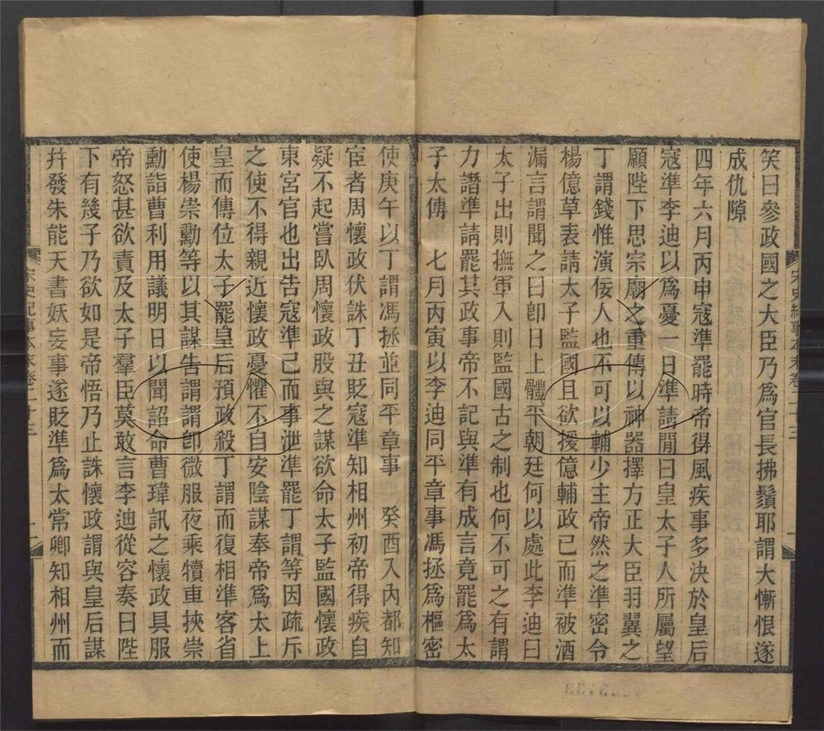 笑曰參政國之大臣乃爲官長拂鬚耶謂大慚恨遂
成仇隙
四年六月丙申寇準罷時帝得風疾事多決於皇后
寇準李迪以爲憂一日準請閒曰皇太子人所屬望
願陛下思宗廟之重傳以神器擇方正大臣羽翼之
丁謂錢惟演佞人也不可以輔少主帝然之準密令
楊億草表請太子監國且欲援億輔政已而準被酒
漏言謂聞之曰卽日上體平朝廷何以處此李迪曰
太子出則撫軍入則監國古之制也何不可之有謂
力譖準請罷其政事帝不記與準有成言竟罷爲太
子太傅 七月丙寅以李迪同平章事馮拯爲樞密
使庚午以丁謂馮拯並同平章事 癸酉入內都知
宦者周懷政伏誅丁丑貶寇準知相州初帝得疾自
疑不起嘗臥周懷政股與之謀欲命太子監國懷政
東宮官也出告寇準已而事泄準罷丁謂等因疏斥
之使不得親近懷政憂懼不自安陰謀奉帝爲太上
皇而傳位太子罷皇后預政殺丁謂而復相準客省
使楊崇勳等以其謀告謂謂卽微服夜乘犢車挾崇
勳詣曹利用議明日以聞詔命曹瑋訊之懷政具服
帝怒甚欲責及太子羣臣莫敢言李迪從容奏曰陛
下有幾子乃欲如是帝悟乃止誅懷政謂與皇后謀
幷發朱能天書妖妄事遂貶準爲太常卿知相州而
宋史紀事本末卷二十三
宋史紀事本末卷二十三